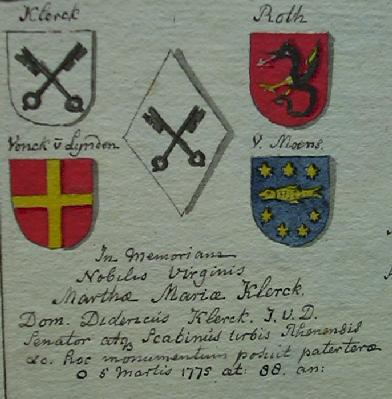 Klerck
Roth
Vonck v̄ Lynden
V. Moens.
In Memoriam
Nobilis Virginis
Marthæ Mariæ Klerck.
Dom. Didericus Klerck. J. U. D.
Senator atq Scabinus Urbis Rhenensis
&c. hoc monumentum posuit pater
O 5 Martis 1775 æt: 38. an: